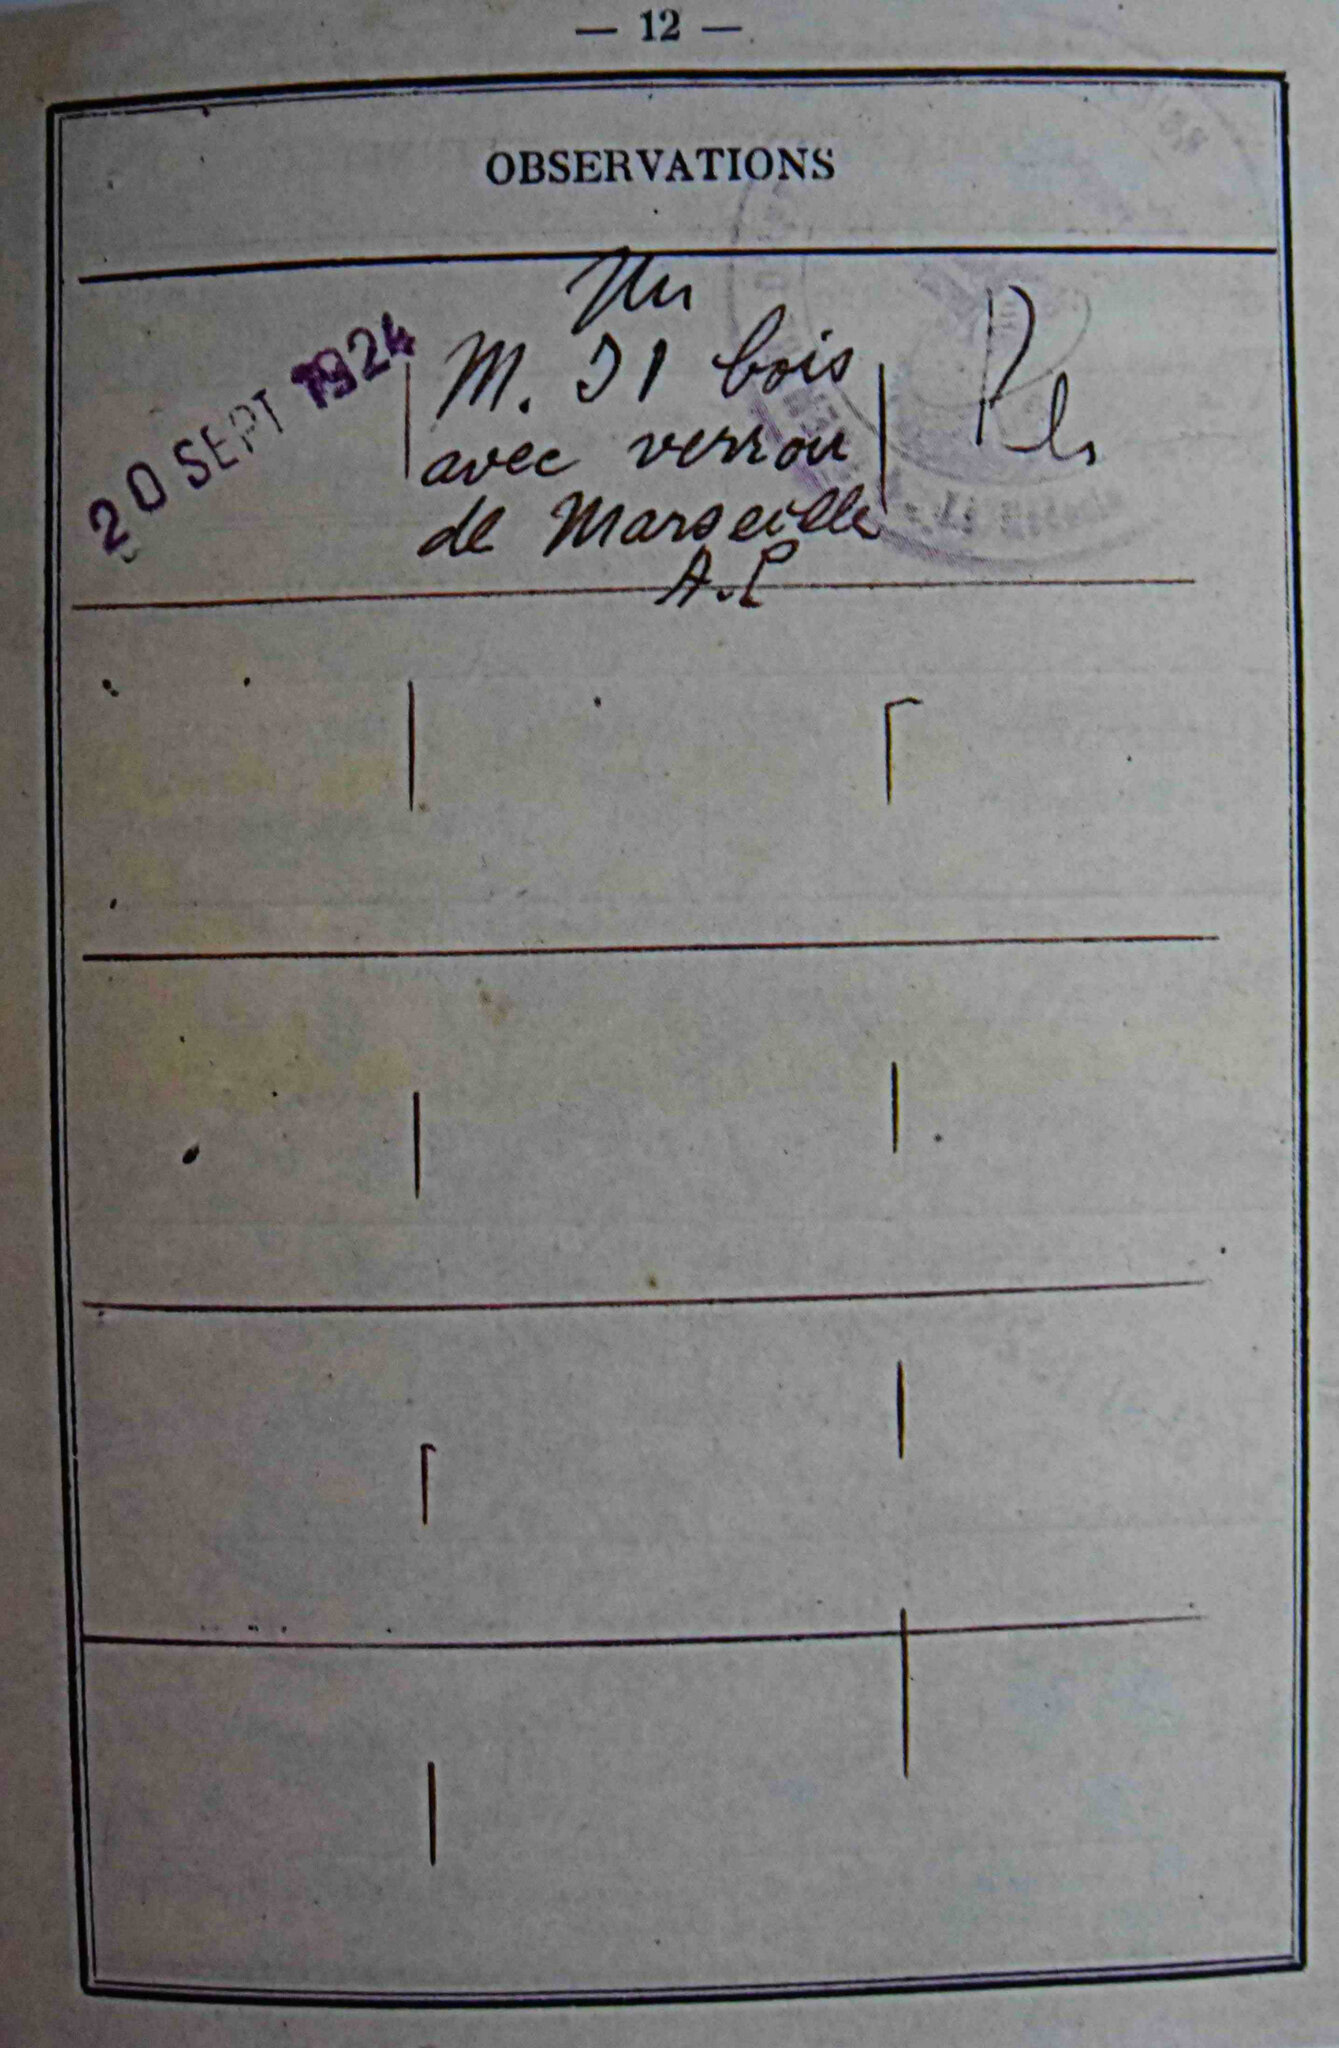 — 12 —
OBSERVATIONS
20 SEPT 1924
Un
M. 31 bois
avec verrou
de Marseille
A.P